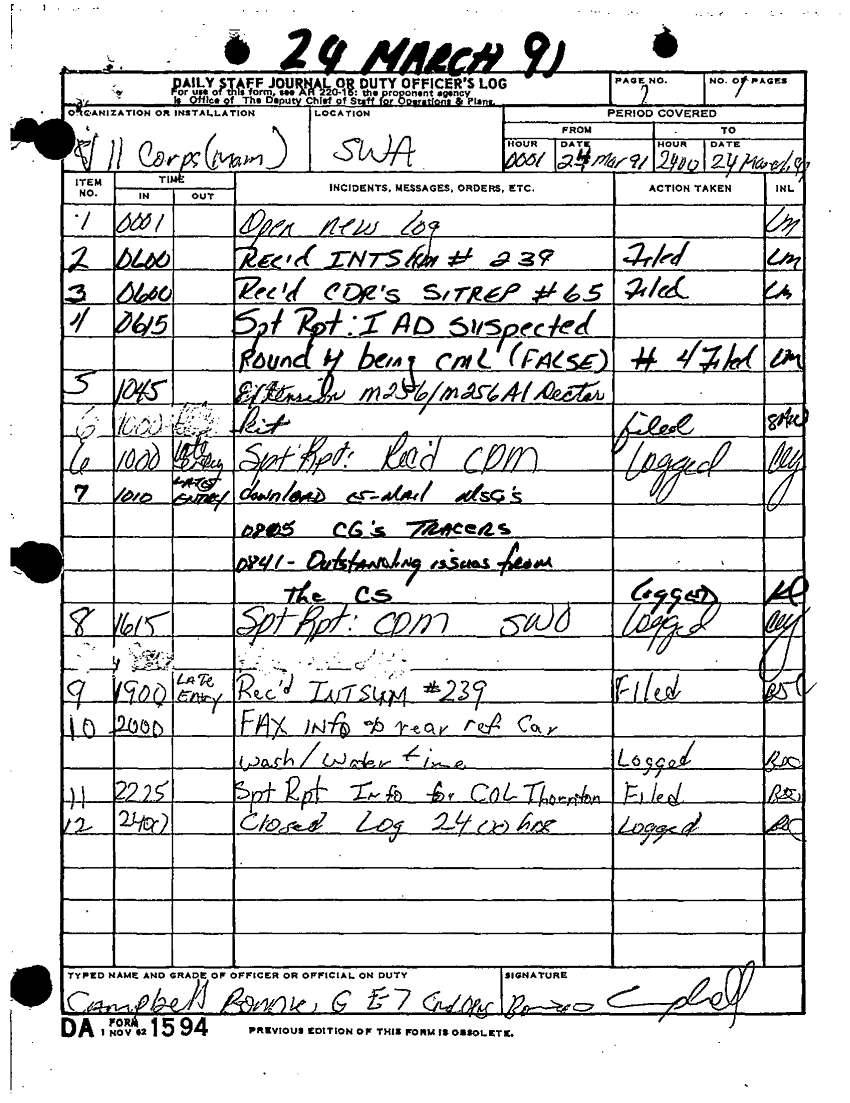 24 MARCH 91
DAILY STAFF JOURNAL OR DUTY OFFICER'S LOG
For use of this form, see AR 220-15: the proponent agency
is Office of The Deputy Chief of Staff for Operations & Plans.
PAGE NO.
1
NO. OF PAGES
1
ORGANIZATION OR INSTALLATION
11 Corps (mam)
LOCATION
SWA
PERIOD COVERED
FROM TO
HOUR DATE HOUR DATE
0001 24 Mar 91 2400 24 March 91
ITEM NO. TIME IN OUT INCIDENTS, MESSAGES, ORDERS, ETC. ACTION TAKEN INL
1 0001 Open new Log Lm
2 0600 REC'd INTSUM # 239 Filed Lm
3 0600 Rec'd CDR'S SITREP # 65 Filed Lm
4 0615 Spt Rpt: I AD suspected
Round 4 being CML (FALSE) # 4 Filed Lm
5 1045 Extension m256/m256A1 Dector
6 1000 kit filed
6 1000 late entry Spt Rpt: Rec'd CDM Logged
7 1010 LATE ENTRY download E-Mail MSG's
0805 CG's TRACERS
0841 - Outstanding issues from
The CS logged
8 1615 Spt Rpt: CDM SWO Logged
9 1900 LATE Entry Rec'd INTSUM #239 Filed
10 2000 FAX info to rear ref Car
wash/water time Logged
11 2225 Spt Rpt Info for COL Thornton Filed
12 2400 Closed Log 24 00 hrs Logged
TYPED NAME AND GRADE OF OFFICER OR OFFICIAL ON DUTY
Campbell Bonnie, G E-7
SIGNATURE
Campbell
DA FORM 1 NOV 62 1594 PREVIOUS EDITION OF THIS FORM IS OBSOLETE.